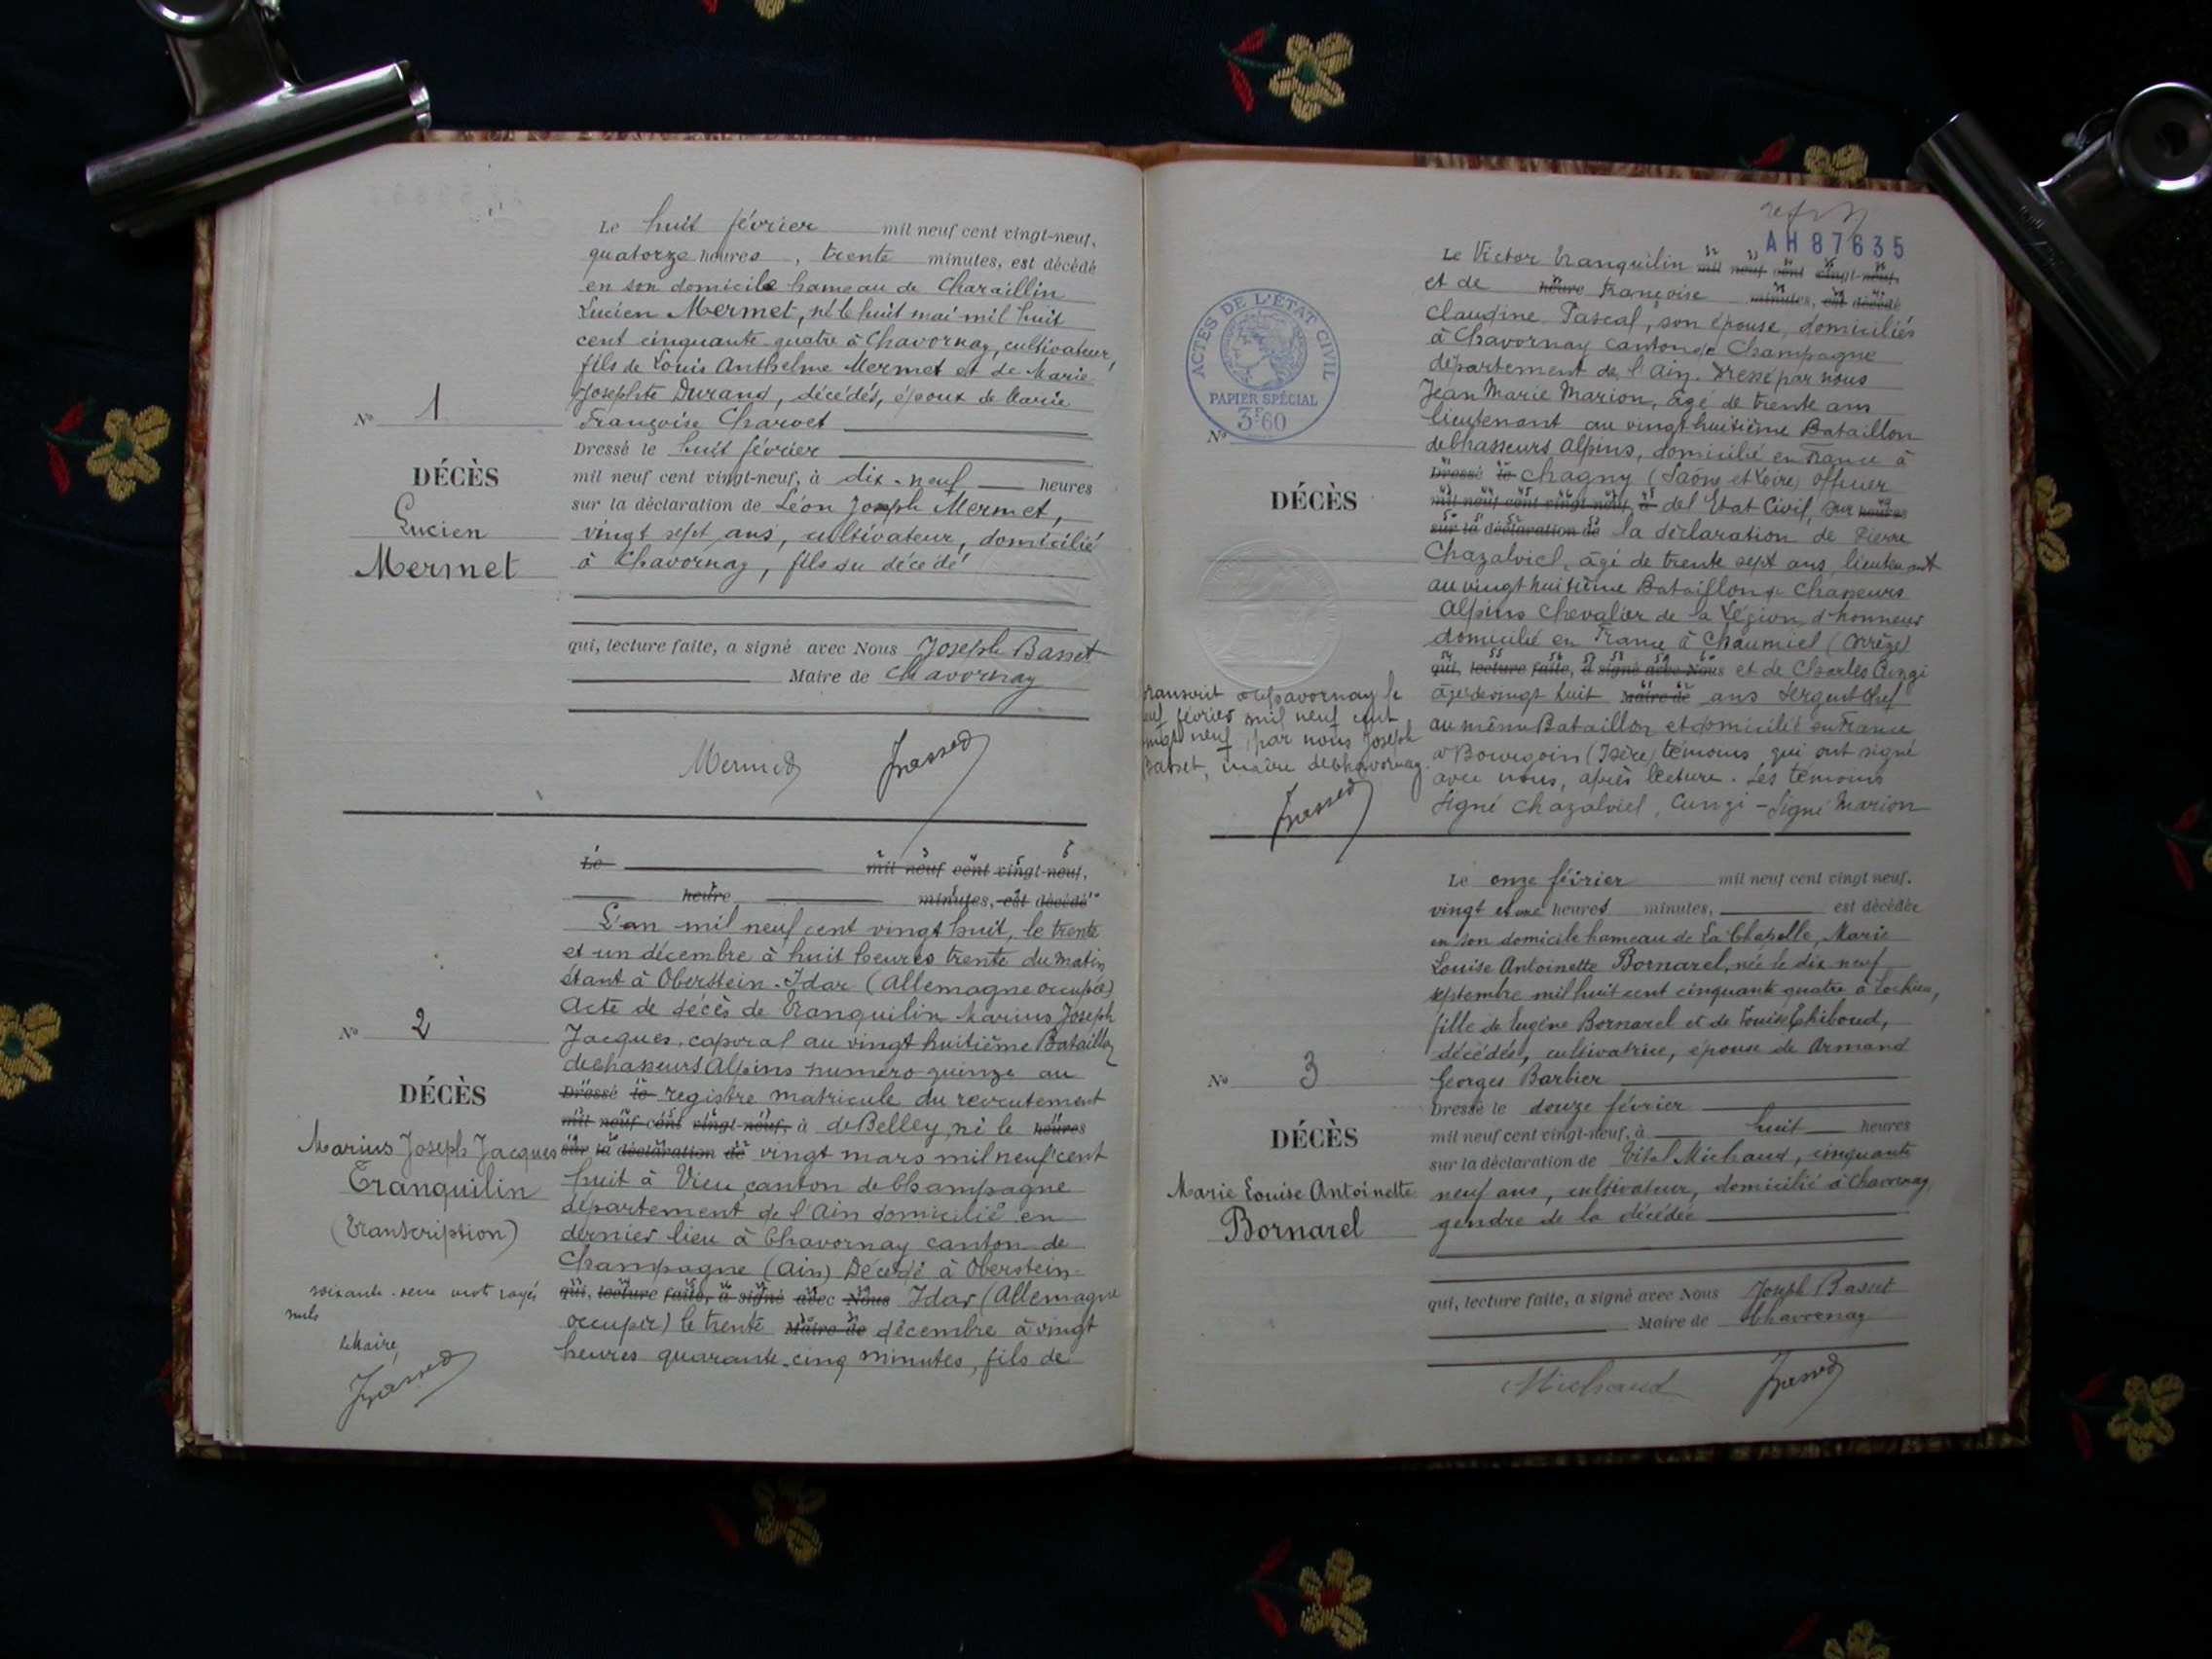 Le huit février mil neuf cent vingt-neuf,
quatorze heures, trente minutes, est décédé
en son domicile hameau de Charaillin
Lucien Mermet, né le huit mai mil huit
cent cinquante quatre à Chavornay, cultivateur,
fils de Louis Anthelme Mermet et de Marie
Josephte Durand, décédés, époux de Marie
Françoise Charvet
Dressé le huit février
mil neuf cent vingt-neuf, à dix-neuf heures
sur la déclaration de Léon Joseph Mermet,
vingt sept ans, cultivateur, domicilié
à Chavornay, fils du décédé
qui, lecture faite, a signé avec Nous Joseph Basset
Maire de Chavornay
No 1
DÉCÈS
Lucien
Mermet
Mermet JBasset
Le mil neuf cent vingt-neuf,
heure minutes, est décédé
L'an mil neuf cent vingt huit, le trente
et un décembre à huit heures trente du matin
étant à Oberstein-Idar (Allemagne occupée)
Acte de décès de Tranquilin Marius Joseph
Jacques, caporal au vingt huitième Bataillon
de chasseurs Alpins numéro quinze au
Dressé le registre matricule du recrutement
mil neuf cent vingt-neuf, à de Belley, né le heures
sur la déclaration de vingt mars mil neuf cent
huit à Vieu, canton de Champagne
département de l'Ain domicilié en
dernier lieu à Chavornay canton de
Champagne (Ain) Décédé à Oberstein-
qui, lecture faite, a signé avec Nous Idar (Allemagne
occupée) le trente Maire de décembre à vingt
heures quarante-cinq minutes, fils de
No 2
DÉCÈS
Marius Joseph Jacques
Tranquilin
(Transcription)
mot rayés
nuls
Le Maire,
JBasset
AH 87635
ACTES DE L'ÉTAT CIVIL
PAPIER SPÉCIAL
3F60
Le Victor Tranquilin mil neuf cent vingt-neuf,
et de heure Françoise minutes, est décédé
Claudine Pascal, son épouse, domiciliés
à Chavornay canton de Champagne
département de l'Ain. Dressé par nous
Jean Marie Marion, âgé de trente ans
lieutenant au vingt huitième Bataillon
de Chasseurs Alpins, domicilié en France à
Dressé le Chagny (Saône et Loire) officier
mil neuf cent vingt-neuf, à de l'Etat Civil, sur heures
sur la déclaration de la déclaration de Pierre
Chazalviel, âgé de trente sept ans, lieutenant
au vingt huitième Bataillon de Chasseurs
Alpins Chevalier de la Légion d'honneur
domicilié en France à Chaumeil (Corrèze)
qui, lecture faite, a signé avec Nous et de Charles Cungi
âgé de vingt huit Maire de ans Sergent Chef
au même Bataillon et domicilié en France
à Bourgoin (Isère) témoins, qui ont signé
avec nous, après lecture. Les témoins
Signé Chazalviel, Cungi - Signé Marion
No
DÉCÈS
Transcrit à Chavornay le
neuf février mil neuf cent
vingt neuf, par nous Joseph
Basset, maire de Chavornay.
JBasset
Le onze février mil neuf cent vingt neuf.
vingt et une heures minutes, est décédée
en son domicile hameau de La Chapelle, Marie
Louise Antoinette Bornarel, née le dix neuf
septembre mil huit cent cinquante quatre à Lochieu,
fille de Eugène Bornarel et de Louise Thiboud,
décédés, cultivatrice, épouse de Armand
Georges Barbier
Dressé le douze février
mil neuf cent vingt-neuf, à huit heures
sur la déclaration de Vital Michaud, cinquante
neuf ans, cultivateur, domicilié à Chavornay
gendre de la décédée
qui, lecture faite, a signé avec Nous Joseph Basset
Maire de Chavornay
No 3
DÉCÈS
Marie Louise Antoinette
Bornarel
Michaud JBasset